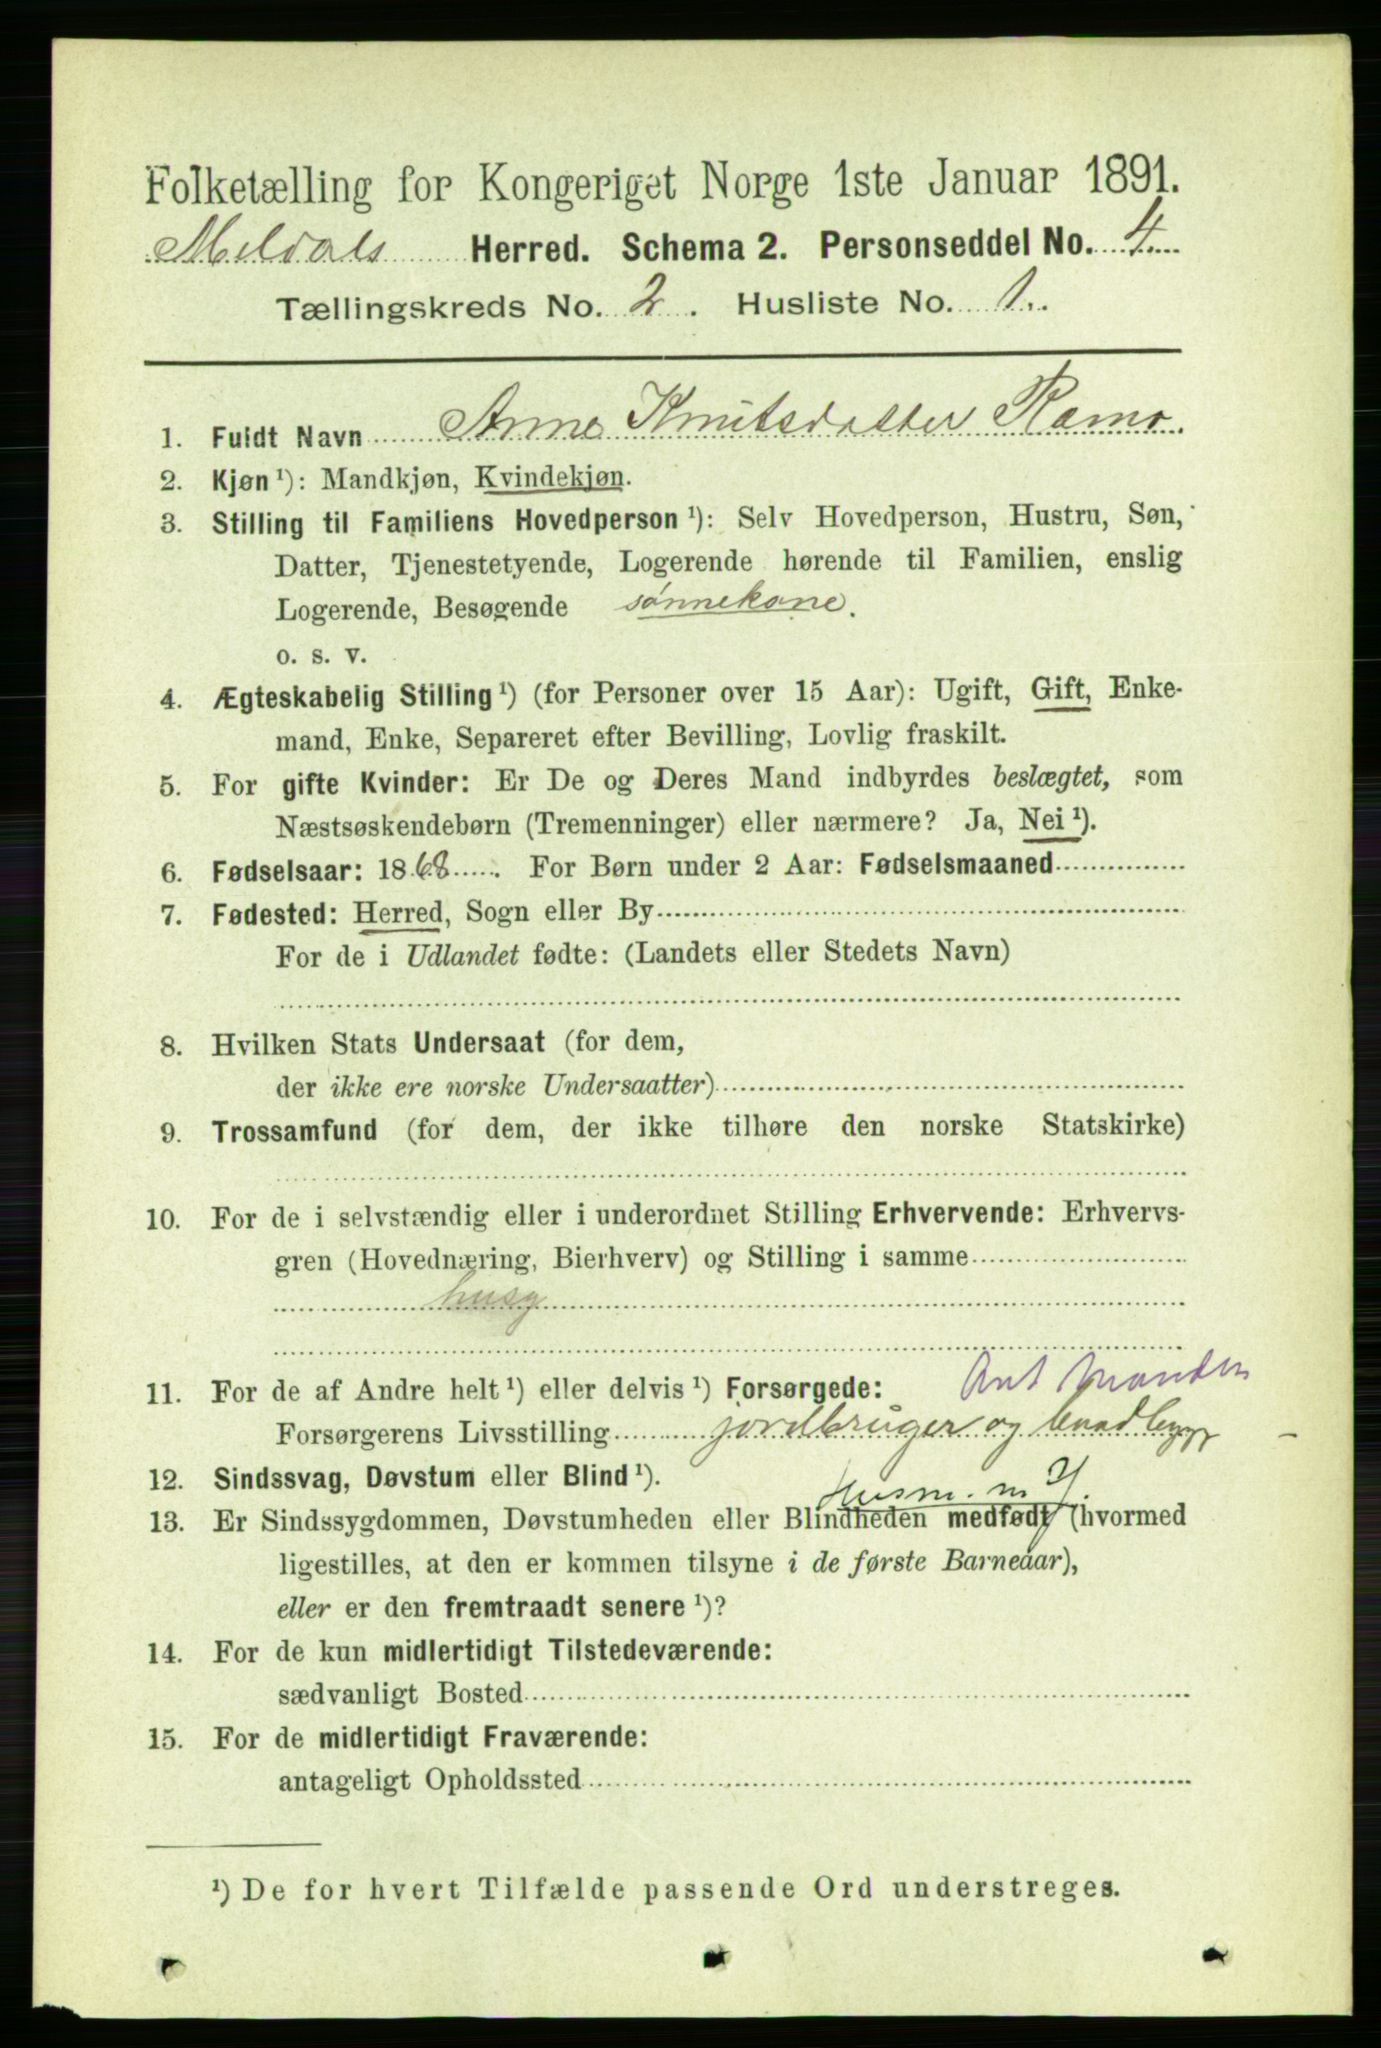 Folketælling for Kongeriget Norge 1ste Januar 1891.
Meldals Herred. Schema 2. Personseddel No. 4
Tællingskreds No. 2. Husliste No. 1.
1. Fuldt Navn Anne Knutsdatter Ramo
2. Kjøn ¹): Mandkjøn, Kvindekjøn.
3. Stilling til Familiens Hovedperson ¹): Selv Hovedperson, Hustru, Søn,
Datter, Tjenestetyende, Logerende hørende til Familien, enslig
Logerende, Besøgende sønnekone.
o. s. v.
4. Ægteskabelig Stilling ¹) (for Personer over 15 Aar): Ugift, Gift, Enke-
mand, Enke, Separeret efter Bevilling, Lovlig fraskilt.
5. For gifte Kvinder: Er De og Deres Mand indbyrdes beslægtet, som
Næstsøskendebørn (Tremenninger) eller nærmere? Ja, Nei ¹).
6. Fødselsaar: 1868. For Børn under 2 Aar: Fødselsmaaned
7. Fødested: Herred, Sogn eller By
For de i Udlandet fødte: (Landets eller Stedets Navn)
8. Hvilken Stats Undersaat (for dem,
der ikke ere norske Undersaatter)
9. Trossamfund (for dem, der ikke tilhøre den norske Statskirke)
10. For de i selvstændig eller i underordnet Stilling Erhvervende: Erhvervs-
gren (Hovednæring, Bierhverv) og Stilling i samme
husg
11. For de af Andre helt ¹) eller delvis ¹) Forsørgede: Ant Manden
Forsørgerens Livsstilling jordbruger og
12. Sindssvag, Døvstum eller Blind ¹).
Husm. m J.
13. Er Sindssygdommen, Døvstumheden eller Blindheden medfødt (hvormed
ligestilles, at den er kommen tilsyne i de første Barneaar),
eller er den fremtraadt senere ¹)?
14. For de kun midlertidigt Tilstedeværende:
sædvanligt Bosted
15. For de midlertidigt Fraværende:
antageligt Opholdssted
¹) De for hvert Tilfælde passende Ord understreges.